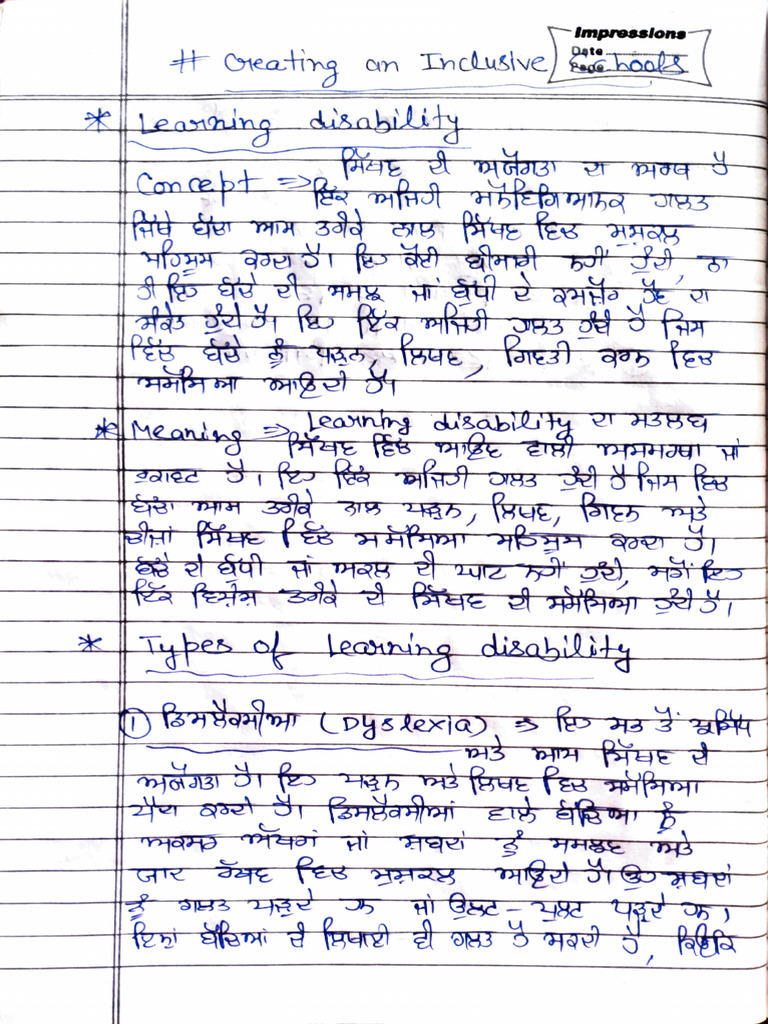 Impressions
Date
Page
# Creating an Inclusive Schools
* Learning disability
Concept ⇒ ਸਿੱਖਣ ਦੀ ਅਯੋਗਤਾ ਦਾ ਅਰਥ ਹੈ
ਇੱਕ ਅਜਿਹੀ ਮਨੋਵਿਗਿਆਨਕ ਹਾਲਤ
ਜਿੱਥੇ ਬੱਚਾ ਆਮ ਤਰੀਕੇ ਨਾਲ ਸਿੱਖਣ ਵਿਚ ਮੁਸ਼ਕਲ
ਮਹਿਸੂਸ ਕਰਦਾ ਹੈ। ਇਹ ਕੋਈ ਬੀਮਾਰੀ ਨਹੀਂ ਹੁੰਦੀ, ਨਾ
ਹੀ ਇਹ ਬੱਚੇ ਦੀ ਸਮਝ ਜਾਂ ਬੁੱਧੀ ਦੇ ਕਮਜ਼ੋਰ ਹੋਣ ਦਾ
ਸੰਕੇਤ ਹੁੰਦੀ ਹੈ। ਇਹ ਇੱਕ ਅਜਿਹੀ ਹਾਲਤ ਹੁੰਦੀ ਹੈ ਜਿਸ
ਵਿੱਚ ਬੱਚੇ ਨੂੰ ਪੜ੍ਹਨ, ਲਿਖਣ, ਗਿਣਤੀ ਕਰਨ ਵਿਚ
ਸਮੱਸਿਆ ਆਉਂਦੀ ਹੈ।
* Meaning ⇒ Learning disability ਦਾ ਮਤਲਬ
ਸਿੱਖਣ ਵਿੱਚ ਆਉਣ ਵਾਲੀ ਅਸਮਰਥਾ ਜਾਂ
ਰੁਕਾਵਟ ਹੈ। ਇਹ ਇੱਕ ਅਜਿਹੀ ਹਾਲਤ ਹੁੰਦੀ ਹੈ ਜਿਸ ਵਿਚ
ਬੱਚਾ ਆਮ ਤਰੀਕੇ ਨਾਲ ਪੜ੍ਹਨ, ਲਿਖਣ, ਗਿਣਨ ਅਤੇ
ਚੀਜ਼ਾਂ ਸਿੱਖਣ ਵਿੱਚ ਸਮੱਸਿਆ ਮਹਿਸੂਸ ਕਰਦਾ ਹੈ।
ਬੱਚੇ ਦੀ ਬੁੱਧੀ ਜਾਂ ਅਕਲ ਦੀ ਘਾਟ ਨਹੀਂ ਹੁੰਦੀ, ਸਗੋਂ ਇਹ
ਇੱਕ ਵਿਸ਼ੇਸ਼ ਤਰੀਕੇ ਦੀ ਸਿੱਖਣ ਦੀ ਸਮੱਸਿਆ ਹੁੰਦੀ ਹੈ।
* Types of Learning disability
① ਡਿਸਲੈਕਸੀਆ (Dyslexia) ⇒ ਇਹ ਸਭ ਤੋਂ ਪ੍ਰਸਿੱਧ
ਅਤੇ ਆਮ ਸਿੱਖਣ ਦੀ
ਅਯੋਗਤਾ ਹੈ। ਇਹ ਪੜ੍ਹਨ ਅਤੇ ਲਿਖਣ ਵਿਚ ਸਮੱਸਿਆ
ਪੈਦਾ ਕਰਦੀ ਹੈ। ਡਿਸਲੈਕਸੀਆਂ ਵਾਲੇ ਬੱਚਿਆਂ ਨੂੰ
ਅਕਸਰ ਅੱਖਰਾਂ ਜਾਂ ਸ਼ਬਦਾਂ ਨੂੰ ਸਮਝਣ ਅਤੇ
ਯਾਦ ਰੱਖਣ ਵਿਚ ਮੁਸ਼ਕਲ ਆਉਂਦੀ ਹੈ। ਉਹ ਸ਼ਬਦਾਂ
ਨੂੰ ਗਲਤ ਪੜ੍ਹਦੇ ਹਨ ਜਾਂ ਉਲਟ-ਪੁਲਟ ਪੜ੍ਹਦੇ ਹਨ।
ਇਨ੍ਹਾਂ ਬੱਚਿਆਂ ਦੀ ਲਿਖਾਈ ਵੀ ਗਲਤ ਹੋ ਸਕਦੀ ਹੈ, ਕਿਉਂਕਿ